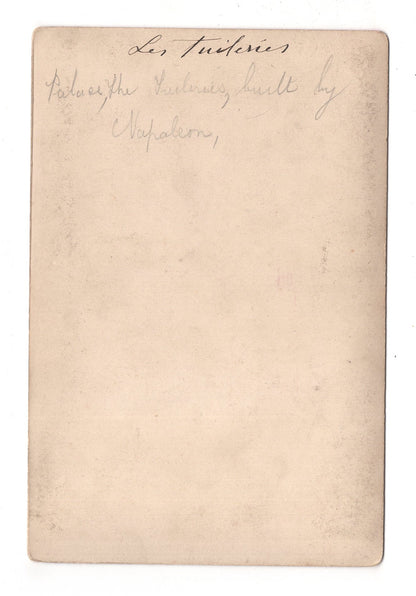 Les Tuileries
Palace, the Tuileries, built by
Napoleon,